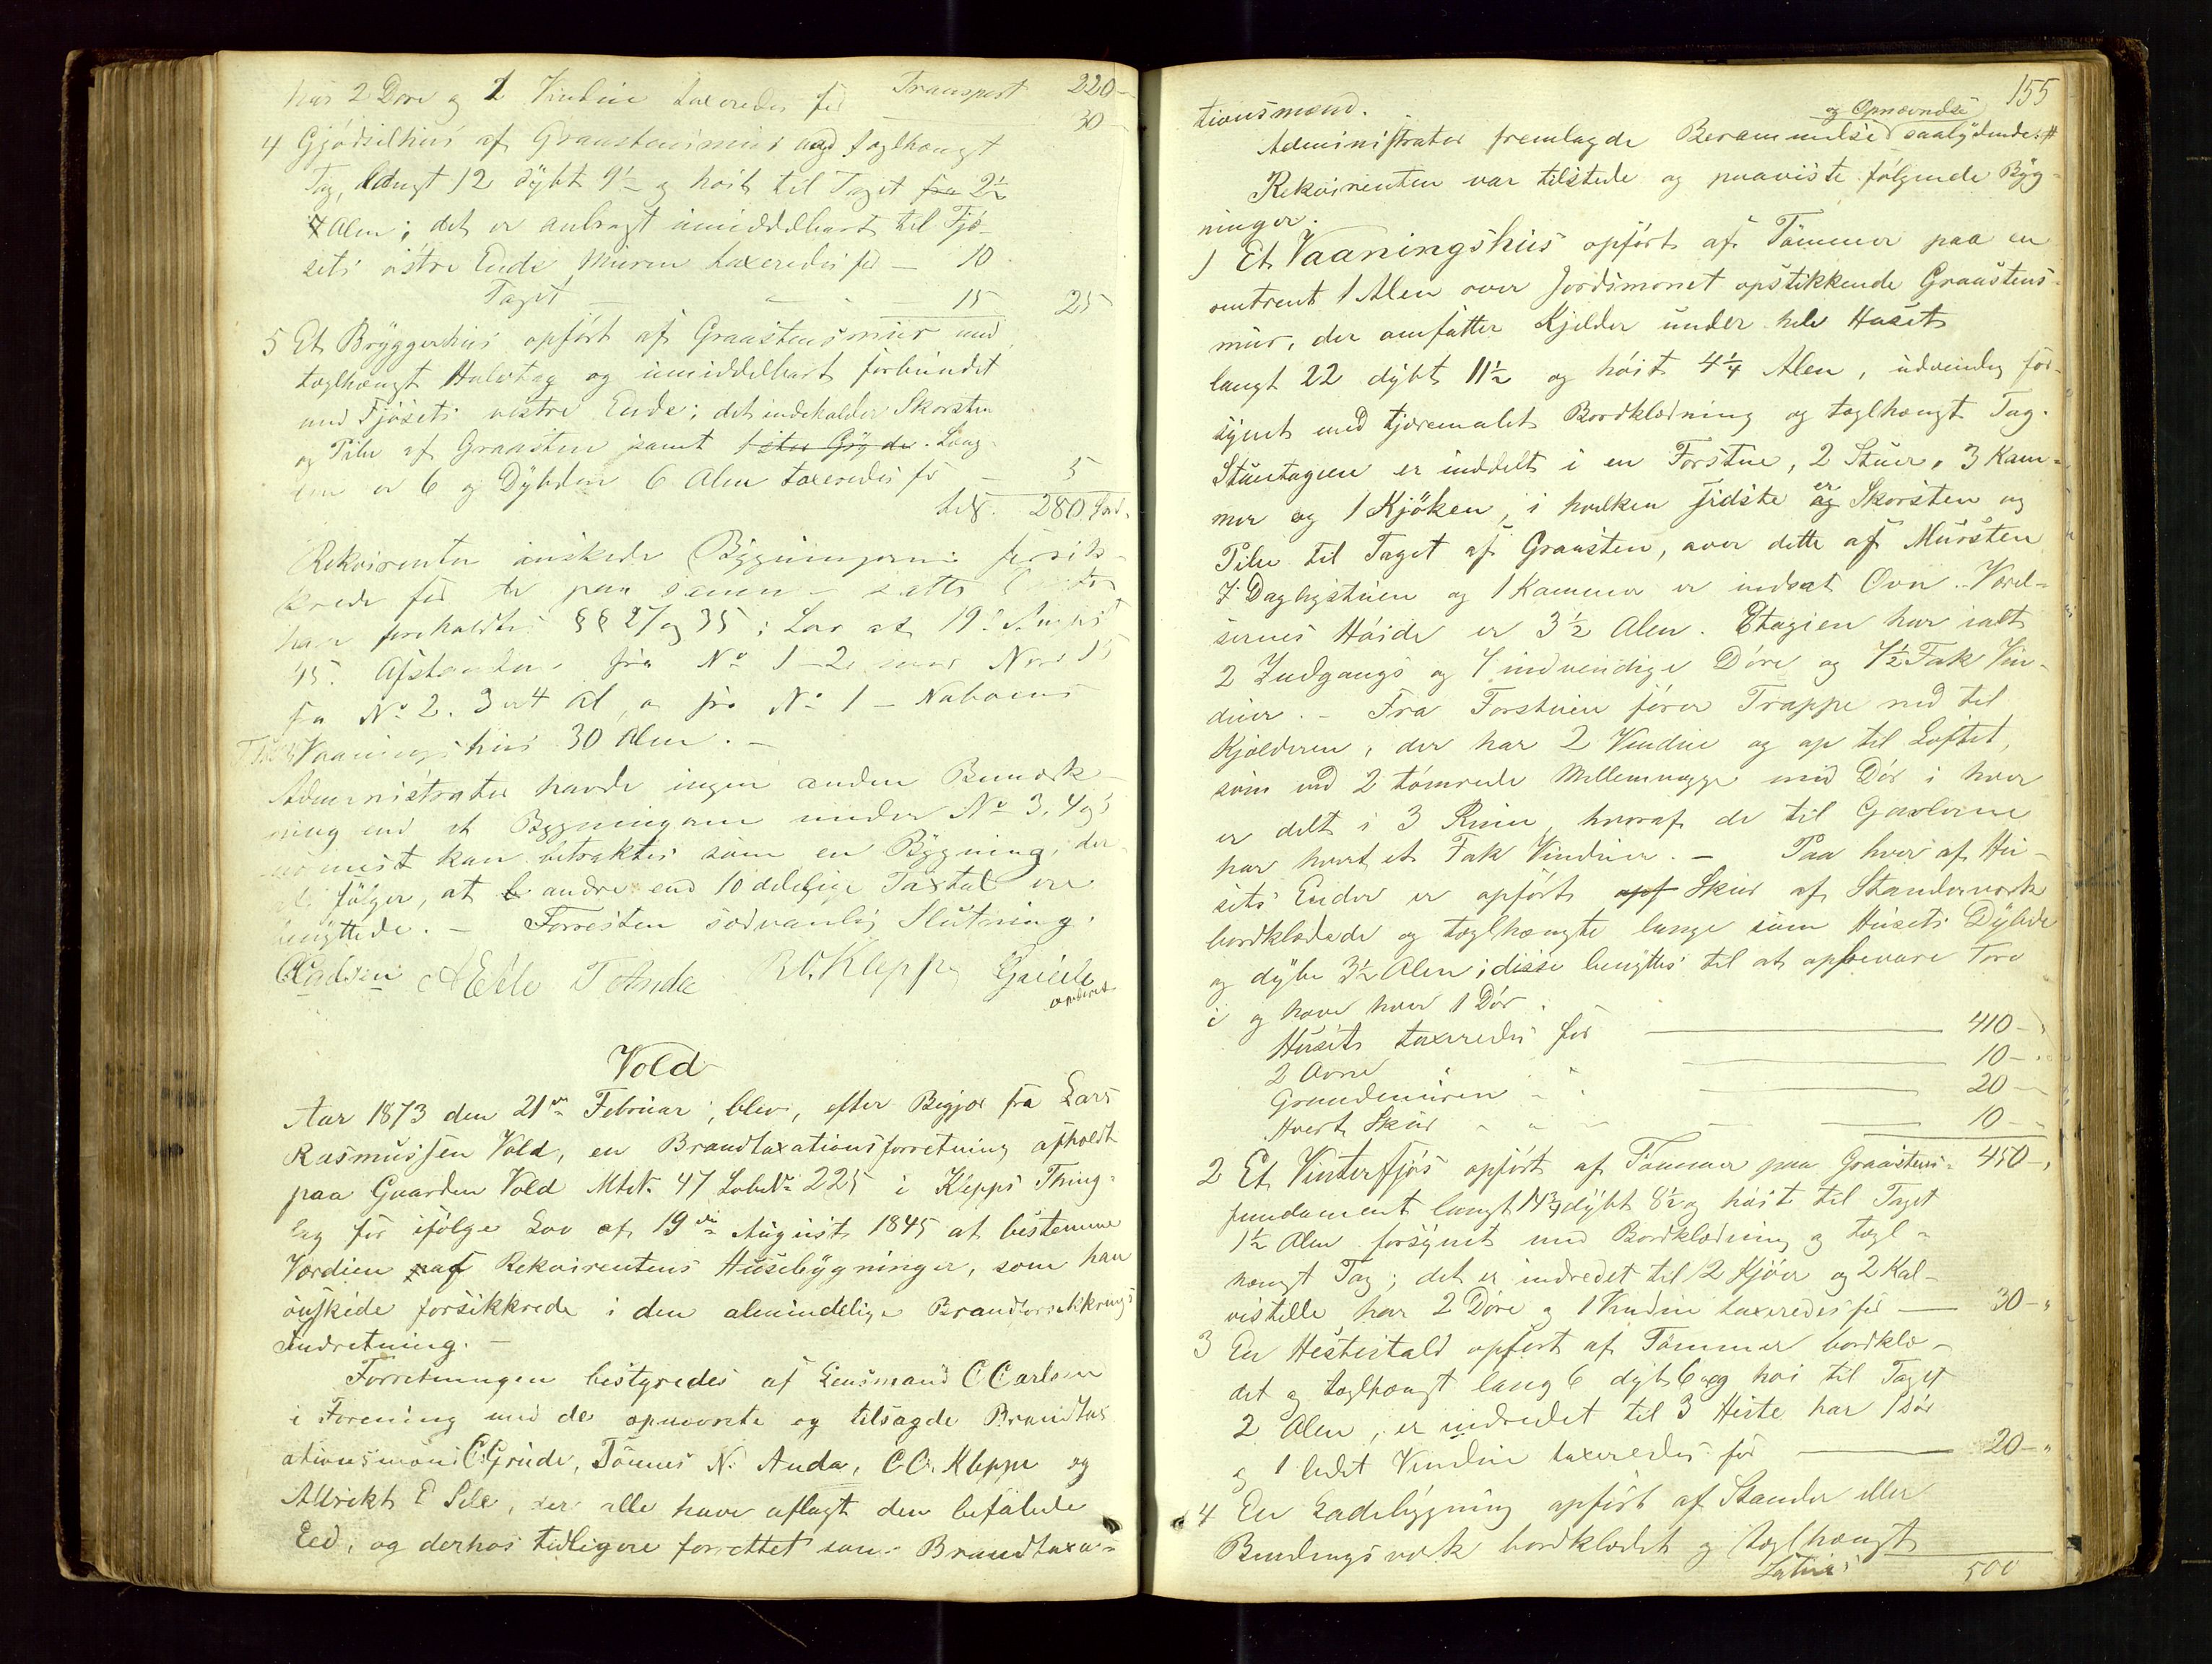 Transport 220-
har 2 Døre og 1 Vindue taxeredes for 30-
4 Gjødselhus af Graasteensmuur med taglhængt
Tag, langt 12 dybt 9½ og høit til Taget 2½
Alen; det er anbragt umiddelbart til Fjø-
sets østre Ende Muren taxeredes for – 10
Taget – " - 15 25
5 Et Bryggerhus opført af Graasteensmuur med
taglhængt Halvtag og umiddelbart forbundet
med Fjøsets vestre Ende; det indeholder Skorsten
og Pibe af Graasten samt 1 stor Gryde. Læng-
den er 6 og Dybden 6 Alen taxeredes for – 5
tils. 280 Spd.
Rekvirenten ønskede Bygningerne forsik-
krede for de paa samme satte
han foreholdtes §§ 27 og 35 i Lov af 19. August
45. Afstanden fra No 1-2 mod Nord 15
fra No 2. 3 er 4 Al, og fra No 1 – Naboens
Vaaningshus 30 Alen. –
Administrator havde ingen anden Bemærk-
ning end at Bygningerne under No 3, 4 og 5
nærmest kan betraktes som en Bygning, der-
af følger, at andre end 10 delelige Taxtal ere
benyttede. – Forresten sædvanlig Slutning.
CCarlsen AESele TAnda C.C.Kleppe CGrude
Vold
Aar 1873 den 21de Februar, blev, efter Begjær fra Lars
Rasmussen Vold, en Brandtaxationsforretning afholdt
paa Gaarden Vold Mtrk. 47 Løbeno 225 i Klepps Thing-
lag for ifølge Lov af 19de August 1845 at bestemme
Værdien af Rekvirentens Huusebygninger, som han
ønskede forsikkrede i den almindelige Brandforsikkrings
Indretning. –
Forretningen bestyredes af Lensmand CCarlsen
i Forening med de opnævnte og tilsagde Brandtax
ationsmænd C Grude, Tønnes N. Anda, C C. Kleppe og
Albrikt E Sele, der alle have aflagt den befalede
Eed, og derhos tidligere forrettet som Brandtaxa-
155
tionsmænd.
og Opnævnelse
Administrator fremlagde Berammelse saalydende: #
Rekvirenten var tilstede og paaviste følgende Byg-
ninger.
1 Et Vaaningshus opført af Tømmer paa en
omtrent 1 Alen over Jordsmonet opstikkende Graasteens-
muur, der omfatter Kjelder under hele Huset
langt 22 dybt 11½ og høit 4¼ Alen, udvendig for-
synet med tjæremalet Bordklædning og taglhængt Tag.
Stueetagien er inddelt i en Forstue, 2 Stuer, 3 Kam-
mer og 1 Kjøken, i hvilken sidste er Skorsten og
Pibe til Taget af Graasten, over dette af Mursten
I Dagligstuen og 1 Kammer er indsat Ovn. Værel-
sernes Høide er 3½ Alen. Etagien har ialt
2 Indgangs og 7 indvendige Døre og 7½ Fak Vin-
duer. – Fra Forstuen fører Trappe ned til
Kjælderen, der har 2 Vindue og op til Loftet,
som ved 2 tømrede Mellemvægge med Dør i hver
er delt i 3 Rum, hvoraf de til Gavlerne
har hvert et Fak Vinduer. – Paa hver af Hu-
sets Ender er opført opf Skur af Standerværk
bordklædede og taglhængte lange som Husets Dybde
og dybe 3½ Alen; disse benyttes til at opbevare Torv
i og have hver 1 Dør.
Huset taxeredes for – 410-
2 Ovne 10-
Grundmuren - " 20-
Hvert Skur - " - 10-
450-
2 Et Vinterfjøs opført af Tømmer paa Graasteens-
fundament langt 14¾ dybt 8½ og høit til Taget
1½ Alen forsynet med Bordklædning og tagl-
hængt Tag; det er indredet til 12 Kjøer og 2 Kal-
vestelle har 2 Døre og 1 Vindue taxeredes for – 30-"
3 En Hestestald opført af Tømmer bordklæ-
det og taglhængt lang 6 dybt 6 og høi til Taget
2 Alen, er indredet til 3 Heste har 1 Dør
og 1 lidet Vindue taxeredes for – 20-"
4 En Ladebygning opført af Stander eller
Bindingsværk bordklædet og taglhængt
Latus 500